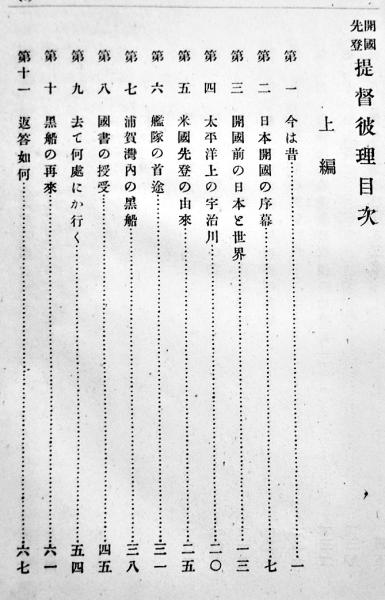 開國先登 提督彼理目次
上編
第一 今は昔…一
第二 日本開國の序幕…七
第三 開國前の日本と世界…一三
第四 太平洋上の宇治川…二〇
第五 米國先登の由來…二五
第六 艦隊の首途…三一
第七 浦賀灣內の黑船…三八
第八 國書の授受…四五
第九 去て何處にか行く…五四
第十 黑船の再來…六一
第十一 返答如何…六七